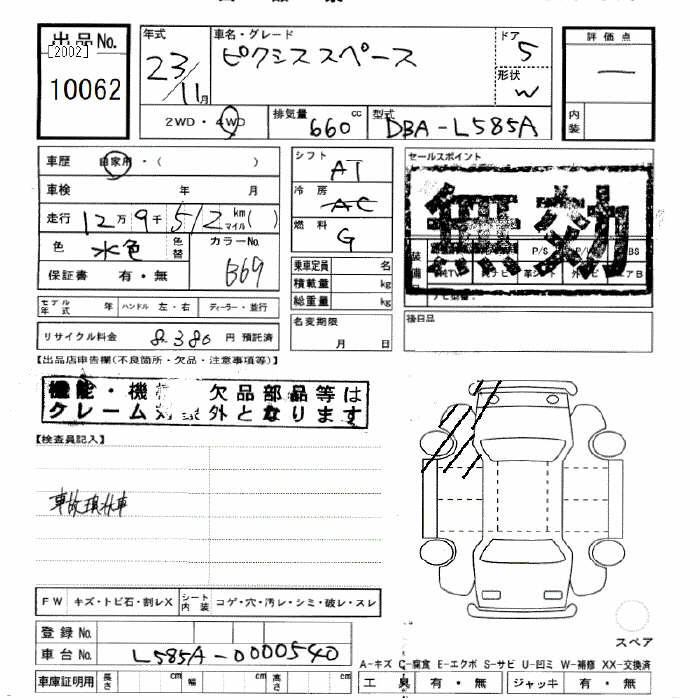 出品No.
[2002]
10062
年式
23/11月
車名・グレード
ピクシススペース
ドア
5
形状
W
評価点
—
内装
2WD・4WD
排気量
660 cc
型式
DBA-L585A
車歴 自家用・( )
車検 年 月
走行 12万9千512 km マイル( )
色 水色 色替
カラーNo.
B69
保証書 有・無
シフト
AT
冷房
AC
燃料
G
乗車定員 名
積載量 kg
総重量 kg
セールスポイント
無効
P/S
モデル年式 年 ハンドル 左・右 ディーラー・並行
名変期限
月 日
後日品
リサイクル料金 8,380 円 預託済
【出品店申告欄(不良箇所・欠品・注意事項等)】
機能・機 欠品部品等は
クレーム対象外となります
【検査員記入】
事故現状車
FW キズ・トビ石・割レX シート内装 コゲ・穴・汚レ・シミ・破レ・スレ
登録No.
車台No. L585A-0000540
車庫証明用 長さ cm 幅 cm 高さ cm
スペア
A-キズ C-腐食 E-エクボ S-サビ U-凹ミ W-補修 XX-交換済
工具 有・無 ジャッキ 有・無